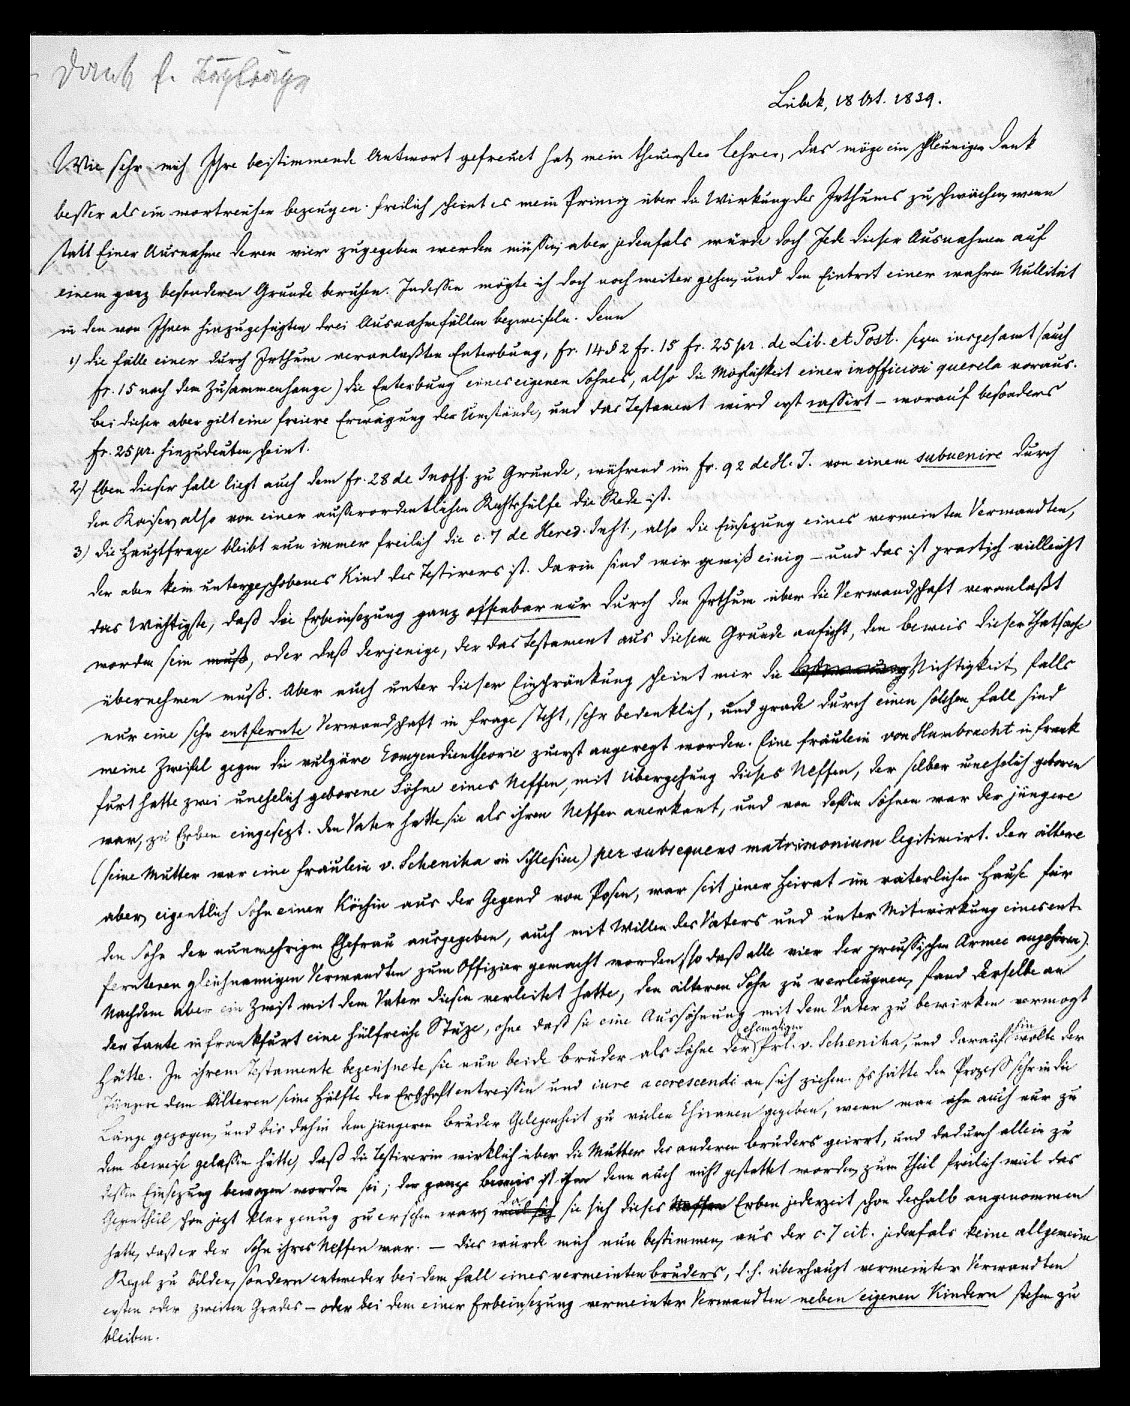 Dank f.
Lübek, 18 Oct. 1839.
Wie sehr mich Ihre beistimmende Antwort gefreuet hat, mein theuerster Lehrer, das möge ein schleuniger Dank
besser als ein wortreicher bezeugen. Freilich scheint es mein Princip über die Wirkung des Irthums zu schwächen, wenn
statt Einer Ausnahme deren vier zugegeben werden müssen; aber jedenfals würde doch Jede dieser Ausnahmen auf
einem ganz besonderen Grunde beruhen. Indessen mögte ich doch noch weiter gehen, und den Eintrit einer wahren Nullität
in den von Ihnen hinzugefügten drei Ausnahmefällen bezweifeln. Denn
1) die Fälle einer durch Irthum veranlaßten Enterbung, fr. 14 § 2 fr. 15 fr. 25 pr. de Lib. et Post. sezen insgesamt (auch
fr. 15 nach dem Zusammenhange) die Enterbung eines eigenen Sohnes, also die Möglichkeit einer inofficiosi querela voraus.
Bei dieser aber gilt eine freiere Erwägung der Umstände, und das Testament wird erst cassirt – worauf besonders
fr. 25 pr. hinzudeuten scheint.
2) Eben dieser Fall liegt auch dem fr. 28 de Inoff. zu Grunde, während im fr. 92 de H. I. von einem subvenire durch
den Kaiser, also von einer ausserordentlichen Rechtshülfe die Rede ist.
3) die Hauptfrage bleibt nun immer freilich die c. 7 de Hered. Inst., also die Einsezung eines vermeinten Verwandten,
der aber kein untergeschobenes Kind des Testirers ist. Darin sind wir gewiß einig – und das ist practisch vielleicht
das Wichtigste, daß die Erbeinsezung ganz offenbar nur durch den Irthum über die Verwandschaft veranlaßt
worden sein muß, oder daß derjenige, der das Testament aus diesem Grunde anficht, den Beweis dieser Thatsache
übernehmen muß. Aber auch unter dieser Einschränkung scheint mir die Nichtigkeit, falls
nur eine sehr entfernte Verwandschaft in Frage steht, sehr bedenklich, und grade durch einen solchen Fall sind
meine Zweifel gegen die vulgäre Compendientheorie zuerst angeregt worden. Eine Fräulein von Humbracht in Frank
furt hatte zwei unehelich geborene Söhne eines Neffen, mit Übergehung dieses Neffen, der selber unehelich geboren
war, zu Erben eingesezt. Den Vater hatte sie als ihren Neffen anerkant, und von dessen Söhnen war der jüngere
(seine Mutter war eine Fräulein v. Schenika in Schlesien) per subsequens matrimonium legitimirt. Der ältere
aber, eigentlich Sohn einer Köchin aus der Gegend von Posen, war seit jener Heirat im väterlichen Hause für
den Sohn der nunmehrigen Ehefrau ausgegeben, auch mit Willen des Vaters und unter Mitwirkung eines ent
fernteren gleichnamigen Verwandten zum Offizier gemacht worden, (so daß alle vier der preussischen Armee angehören).
Nachdem aber ein Zwist mit dem Vater diesen verleitet hatte, den älteren Sohn zu verleugnen, fand derselbe an
der Tante in Frankfurt eine hülfreiche Stüze, ohne daß sie eine Aussöhnung mit dem Vater zu bewirken vermogt
hätte. In ihrem Testamente bezeichnete sie nun beide Brüder als Söhne der ehemaligen Frl. v. Schenika, und darauf hin wolte der
Jüngere dem Älteren seine Hälfte der Erbschaft entreissen und iure accrescendi an sich ziehen. Es hätte den Prozeß sehr in die
Länge gezogen, und bis dahin dem jüngeren Bruder Gelegenheit zu vielen Chicanen gegeben, wenn man ihn auch nur zu
dem Beweise gelassen hätte, daß die Testirerin wirklich über die Mutter des anderen Bruders geirrt, und dadurch allein zu
dessen Einsezung bewogen worden sei; der ganze Beweis ist ihm denn auch nicht gestattet worden, zum Theil freilich weil das
Gegentheil schon jezt klar genug zu ersehen war, da sie sich dieses Erben jederzeit schon deshalb angenommen
hatte, daß er der Sohn ihres Neffen war. – Dies würde mich nun bestimmen, aus der c. 7 cit. jedenfals keine allgemeine
Regel zu bilden, sondern entweder bei dem Fall eines vermeinten Bruders, d. h. überhaupt vermeinter Verwandten
ersten oder zweiten Grades – oder bei dem einer Erbeinsezung vermeinter Verwandten neben eigenen Kindern stehen zu
bleiben.